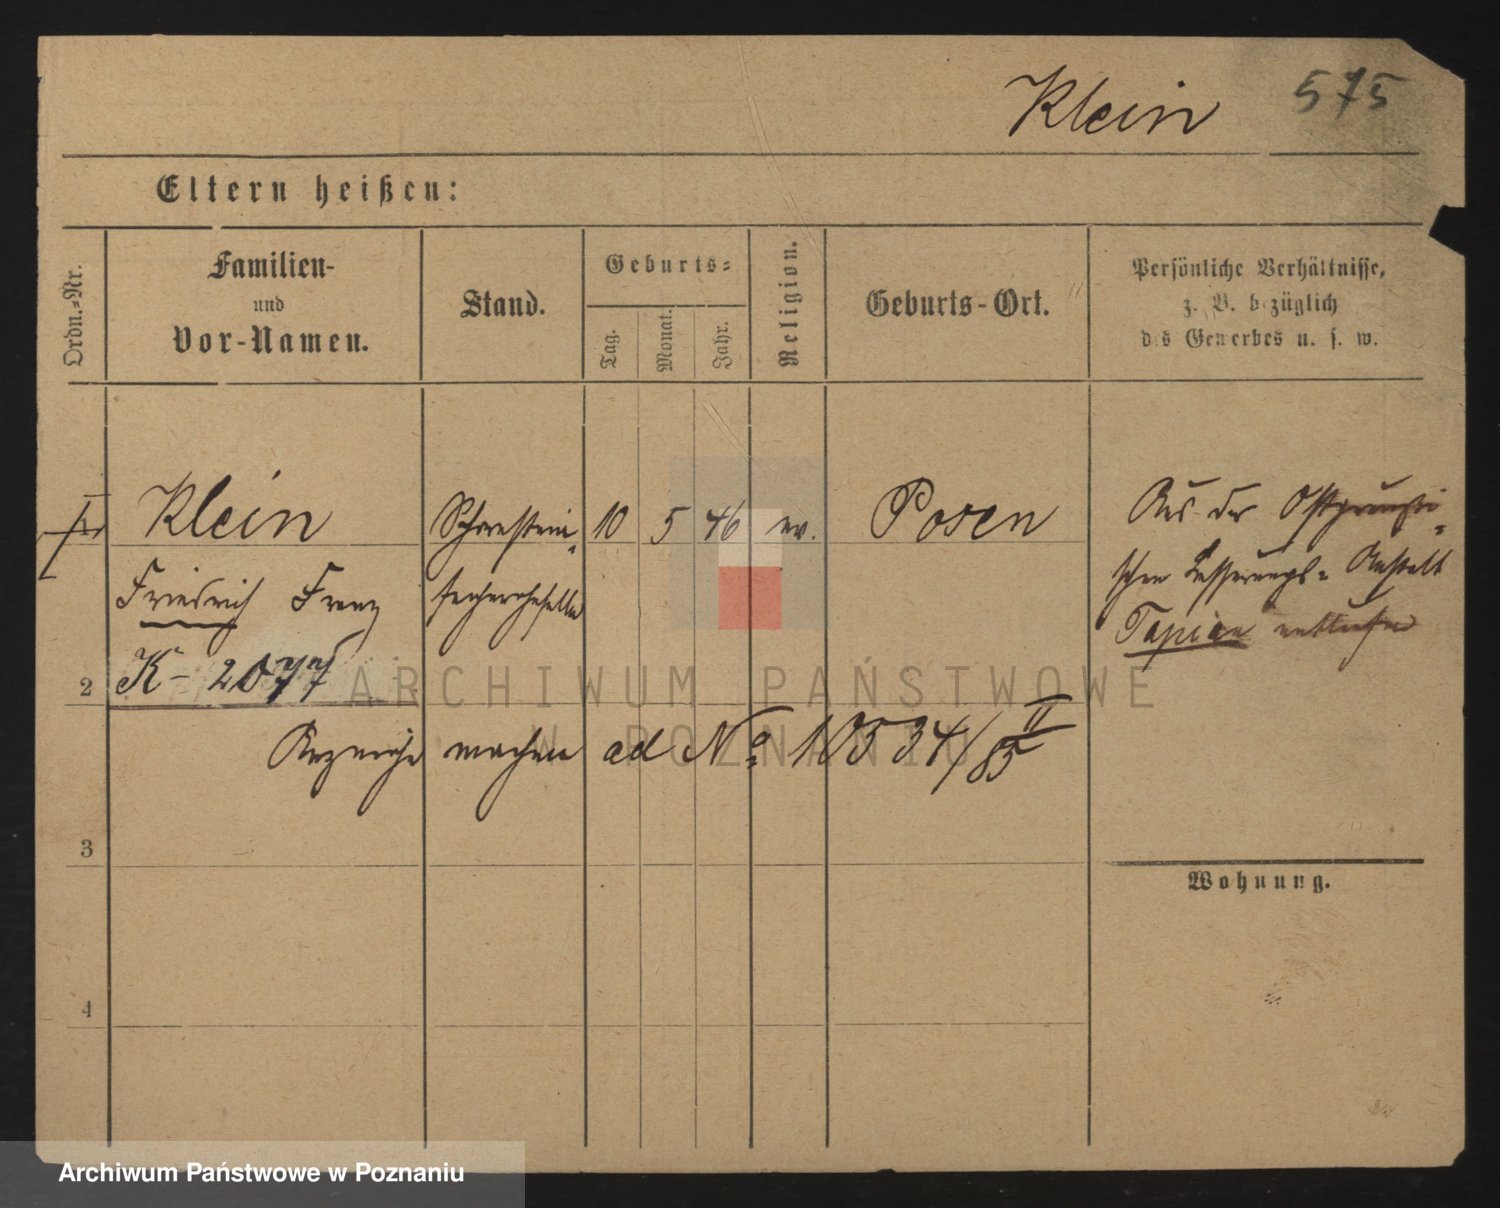 Klein 575
Eltern heißen:
Ordn.-Nr.
Familien-
und
Vor-Namen.
Stand.
Geburts-
Tag.
Monat.
Jahr.
Religion.
Geburts-Ort.
Persönliche Verhältnisse,
z. B. bezüglich
des Gewerbes u. s. w.
1 Klein Schornstein- 10 5 46 ev. Posen
Friedrich Franz fegergeselle
Aus der Ostpreußi-
schen Besserungs-Anstalt
Tapiau entlaufen
2 K - 2077
Anzeige machen ad No 10534/85 II
3
Wohnung.
4
ARCHIWUM PAŃSTWOWE
W POZNANIU
Archiwum Państwowe w Poznaniu